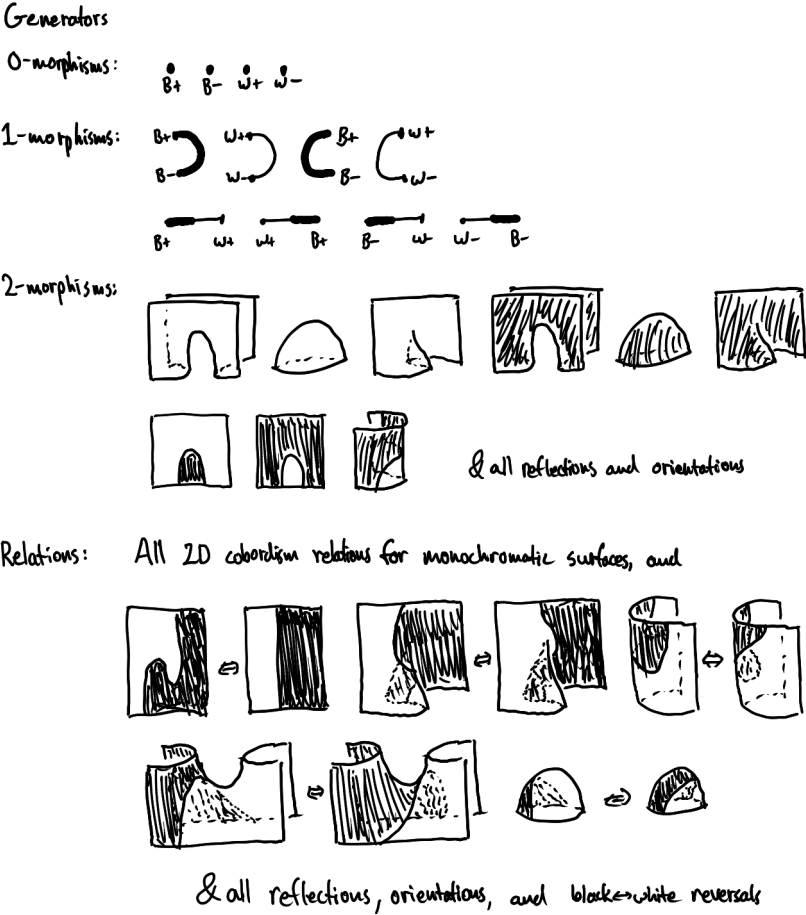 Generators
0-morphisms:
B+ B- W+ W-
1-morphisms: B+ W+ B+ W+
B- W- B- W-
B+ W+ W+ B+ B- W- W- B-
2-morphisms:
& all reflections and orientations
Relations: All 2D cobordism relations for monochromatic surfaces, and
& all reflections, orientations, and black↔white reversals